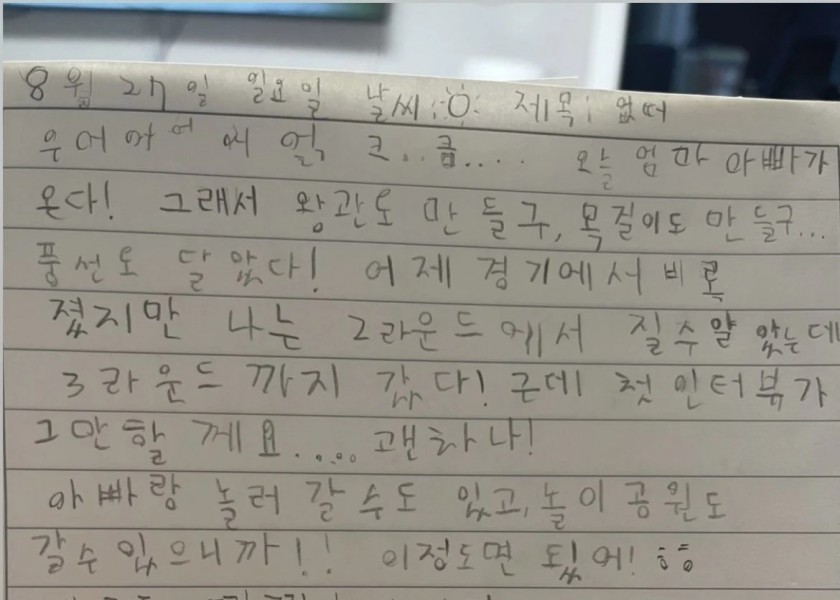 8월 27일 일요일 날씨: 제목: 없떠
우어어어 에 얽 크..큼.... 오늘 엄마 아빠가
온다! 그래서 왕관도 만들구, 목걸이도 만들구...
풍선도 달았다! 어제 경기에서 비록
졌지만 나는 2라운드에서 질수알 았는데
3라운드 까지 갔다! 근데 첫 인터뷰가
그만할 께요..... 괜차나!
아빠랑 놀러 갈 수도 있고, 놀이공원도
갈수 있으니까!! 이정도면 됬어!